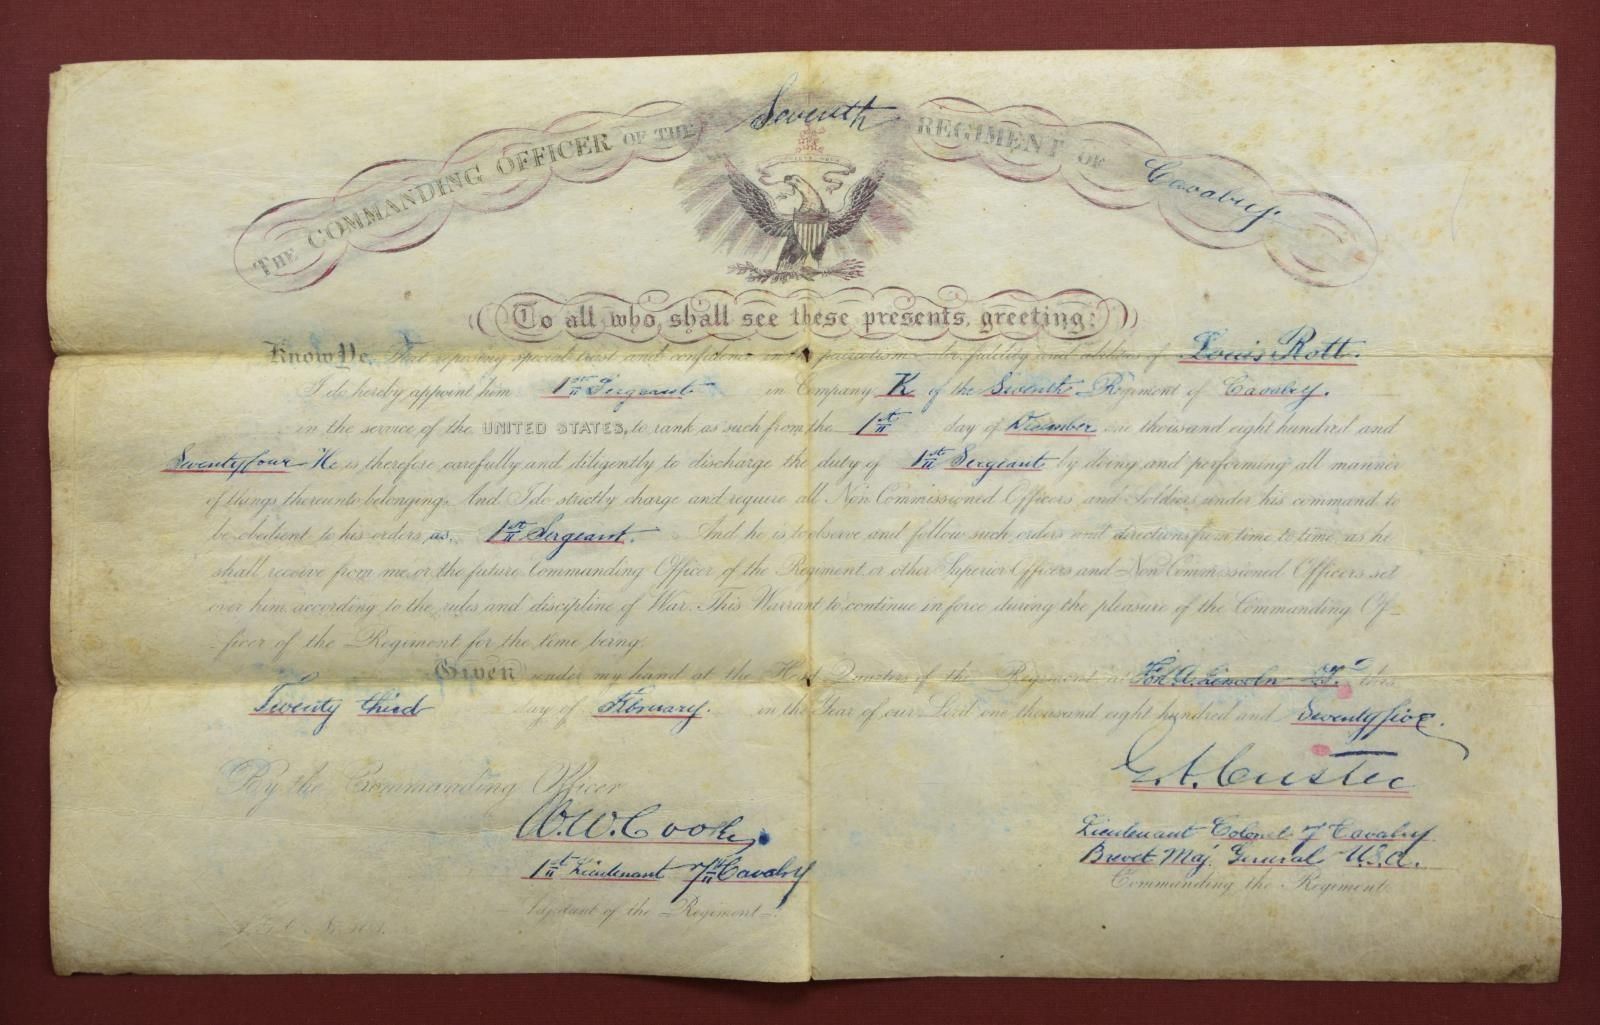 THE COMMANDING OFFICER OF THE Seventh REGIMENT OF Cavalry.
To all who shall see these presents, greeting:
Know Ye, That reposing special trust and confidence in the patriotism, valor, fidelity and abilities of Louis Rott.
I do hereby appoint him 1st Sergeant in Company K of the Seventh Regiment of Cavalry.
in the service of the UNITED STATES, to rank as such from the 1st day of December one thousand eight hundred and
Seventy four He is therefore carefully and diligently to discharge the duty of 1st Sergeant by doing and performing all manner
of things thereunto belonging. And I do strictly charge and require all Non Commissioned Officers and Soldiers under his command to
be obedient to his orders as 1st Sergeant. And he is to observe and follow such orders and directions from time to time, as he
shall receive from me, or the future Commanding Officer of the Regiment, or other Superior Officers and Non Commissioned Officers set
over him, according to the rules and discipline of War. This Warrant to continue in force during the pleasure of the Commanding Of-
-ficer of the Regiment for the time being.
Given under my hand at the Head Quarters of the Regiment at Fort A. Lincoln this
Twenty third day of February. in the Year of our Lord one thousand eight hundred and Seventy five.
G. A. Custer
By the Commanding Officer
W. W. Cooke
Lieutenant Colonel 7 Cavalry
Brevet Maj. General U.S.A.
1st Lieutenant 7th Cavalry
Commanding the Regiment.
Adjutant of the Regiment.